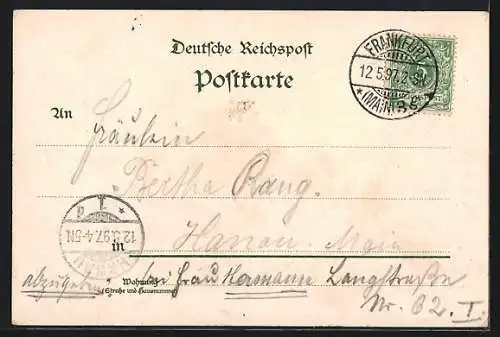 Deutsche Reichspost
Postkarte
FRANKFURT
12.5.97.2-3N
* (MAIN) *
An Fräulein
Bertha Rang.
12.5.97.4-5N
in Hanau. Main
abzugeben bei Frau Hermann Langstraße
Wohnung
(Straße und Hausnummer)
Nr. 62. I